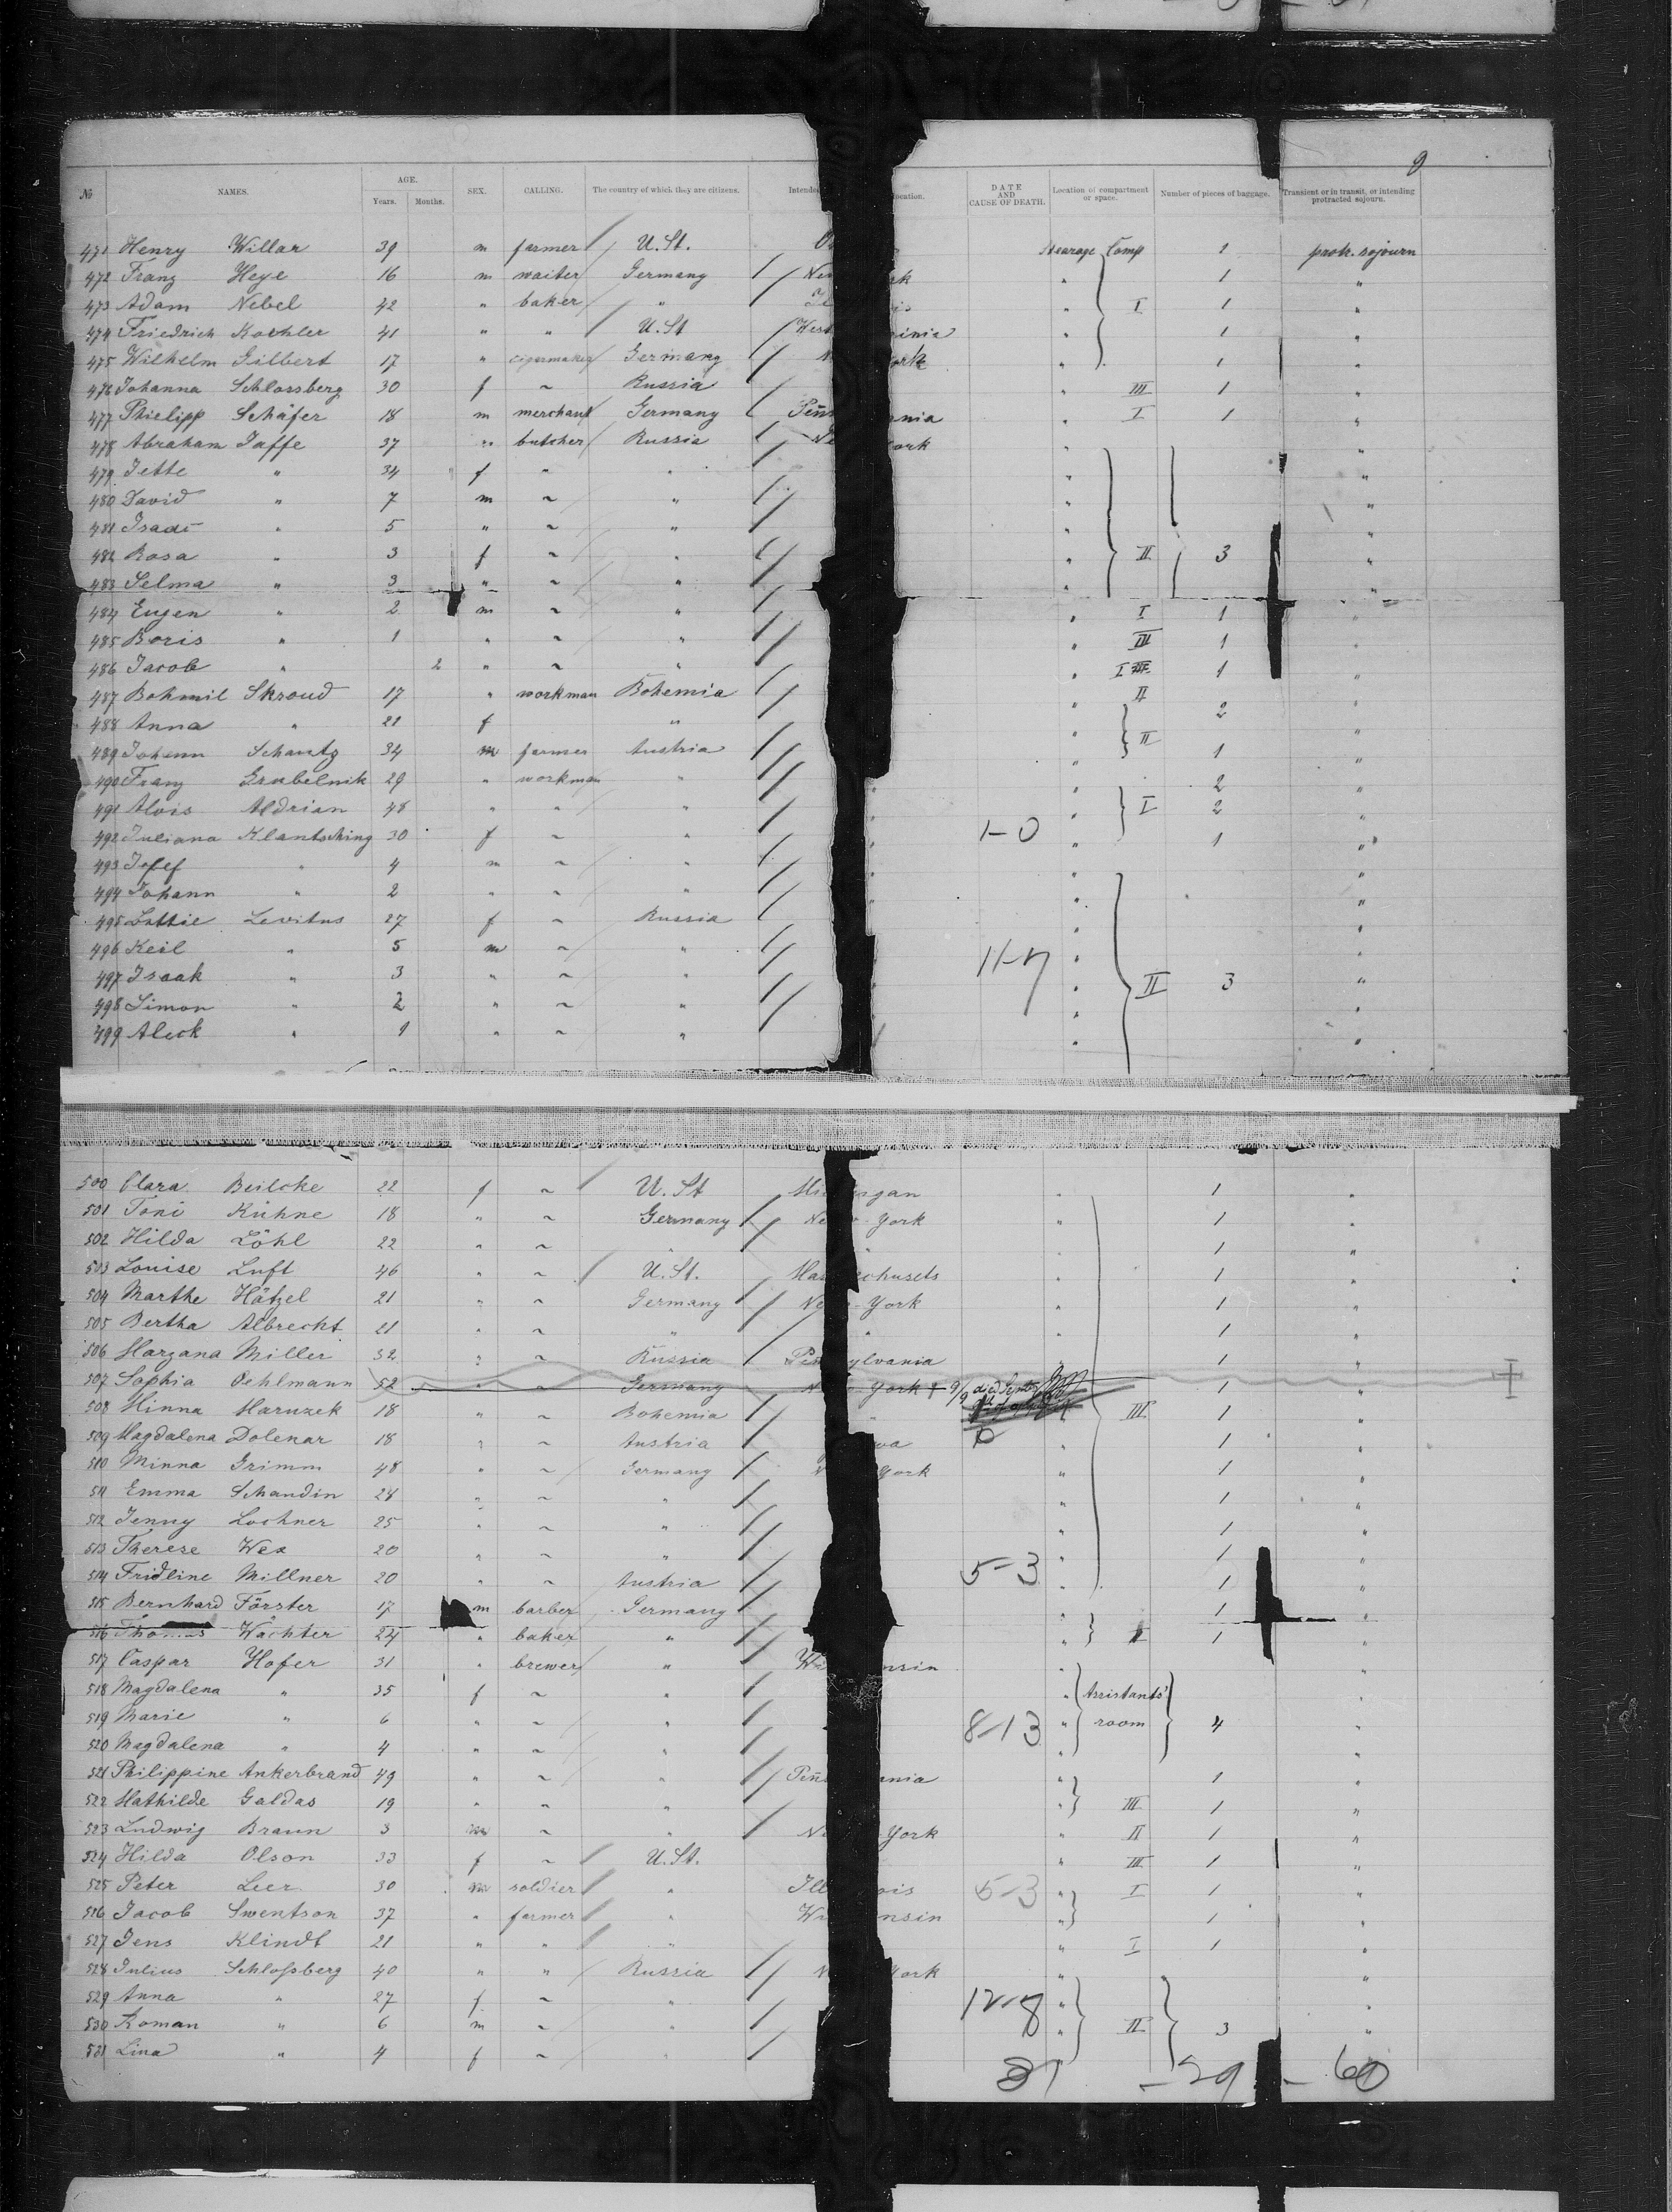 9
№ NAMES. AGE. Years. Months. SEX. CALLING. The country of which they are citizens. Intended location. DATE AND CAUSE OF DEATH. Location of compartment or space. Number of pieces of baggage. Transient or in transit, or intending protracted sojourn.
471 Henry Willar 39 m farmer U.St. Stearage Comp 1 protr. sojourn
472 Franz Heye 16 m waiter Germany New York " 1 "
473 Adam Nebel 42 " baker " " I 1 "
474 Friedrich Koehler 41 " " U.St West Virginia " 1 "
475 Wilhelm Gilbert 17 " cigarmaker Germany ork " 1 "
476 Johanna Schlossberg 30 f ~ Russia " III 1 "
477 Phielipp Schäfer 18 m merchant Germany Peñs ania " I 1 "
478 Abraham Jaffe 37 " butcher Russia Ne ork " "
479 Jette " 34 f ~ " " "
480 David " 7 m ~ " " "
481 Isaac " 5 " ~ " " "
482 Rosa " 3 f ~ " " II 3 "
483 Selma " 3 " ~ " " "
484 Eugen " 2 m ~ " " I 1 "
485 Boris " 1 " ~ " " III 1 "
486 Jacob " 2 " ~ " " I 1 "
487 Bohmil Skroud 17 " workman Bohemia " II "
488 Anna " 21 f " " 2 "
489 Johann Schantz 34 m farmer Austria " II 1 "
490 Franz Grabelnik 29 " workman " " 2 "
491 Alois Aldrian 48 " " " " I 2 "
492 Juliana Klantsching 30 f ~ " 1-0 " 1 "
493 Josef " 4 m ~ " " "
494 Johann " 2 " ~ " " "
495 Lottie Levitus 27 f ~ Russia " "
496 Keil " 5 m ~ " 11-7 " "
497 Isaak " 3 " ~ " " II 3 "
498 Simon " 2 " ~ " " "
499 Aleck " 1 " ~ " " "
500 Clara Beilcke 22 f ~ U.St Michigan " 1 "
501 Toni Kühne 18 " ~ Germany New-York " 1 "
502 Hilda Löhl 22 " ~ " " 1 "
503 Louise Luft 46 " ~ U.St. Massachusets " 1 "
504 Marthe Hätzel 21 " ~ Germany New-York " 1 "
505 Bertha Albrecht 21 " ~ " " " 1 "
506 Margana Miller 32 " ~ Russia Pensylvania 1 "
507 Sophia Oehlmann 52 " ~ Germany New-York † 9/9 died Septbr 1 "
508 Minna Maruzek 18 " ~ Bohemia " III 1 "
509 Magdalena Dolenar 18 " ~ Austria " 1 "
510 Minna Grimm 48 " ~ Germany York " 1 "
511 Emma Schandin 28 " ~ " " 1 "
512 Jenny Lochner 25 " ~ " " 1 "
513 Therese Wex 20 " ~ " " 1 "
514 Fridline Millner 20 " ~ Austria 5-3 " 1 "
515 Bernhard Förster 17 m barber Germany " 1 "
516 Thomas Wächter 24 " baker " " I 1 "
517 Caspar Hofer 31 " brewer " Wi nsin " "
518 Magdalena " 35 f ~ " " Assistants' "
519 Marie " 6 " ~ " 8-13 " room 4 "
520 Magdalena " 4 " ~ " " "
521 Philippine Ankerbrand 49 " ~ " Peñs ania " 1 "
522 Mathilde Galdas 19 " ~ " " III 1 "
523 Ludwig Braun 3 m ~ " New York " II 1 "
524 Hilda Olson 33 f ~ U.St. " III 1 "
525 Peter Leer 30 m soldier " Illinois 5-3 " I 1 "
526 Jacob Swentson 37 " farmer " Wi nsin " 1 "
527 Jens Klindt 21 " " " " I 1 "
528 Julius Schlossberg 40 " " Russia York " "
529 Anna " 27 f ~ " 12-8 " "
530 Roman " 6 m ~ " " II 3 "
531 Lina " 4 f ~ "
- 29 - 60